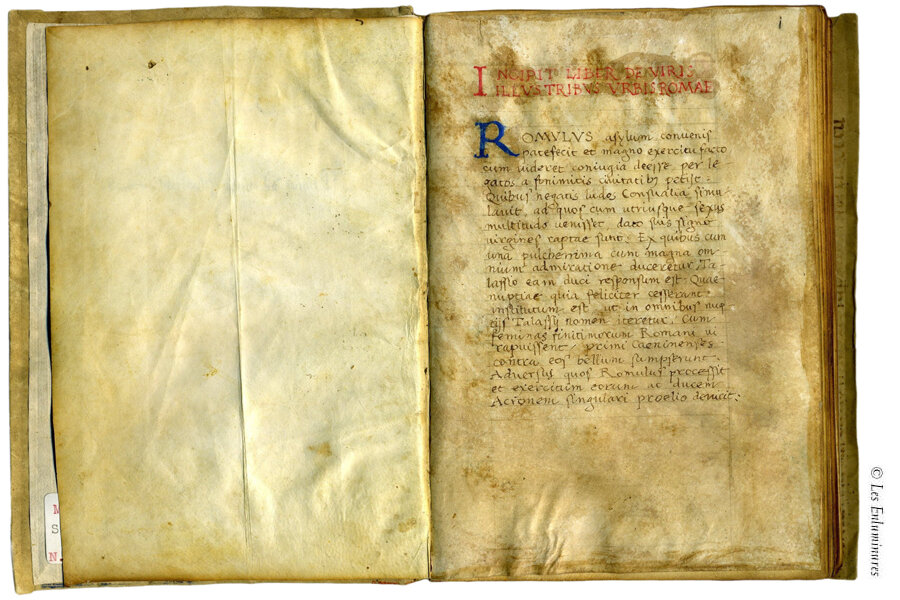 1
INCIPIT LIBER DE VIRIS
ILLVSTRIBVS VRBIS ROMAE
ROMVLVS asylum convenis
patefecit et magno exercitu facto
cum videret coniugia deesse per le
gatos a finimitis civitatibz petiit.
Quibus negatis ludos Consualia simu
lavit, ad quos cum utriusque sexus
multitudo venisset, dato suis signo
virgines raptae sunt. Ex quibus cum
una pulcherrima cum magna om
nium admiratione duceretur Ta
lassio eam duci responsum est. Quae
nuptiae quia feliciter cesserant
institutum est, ut in omnibus nup
ciis Talassij nomen iteretur. Cum
feminas finitimorum Romani vi
rapuissent, primi Caeninenses
contra eos bellum sumpserunt.
Adversus quos Romulus processit
et exercitum eorum ac ducem
Acronem singulari proelio devicit:
M
S
N.
© Les Enluminures